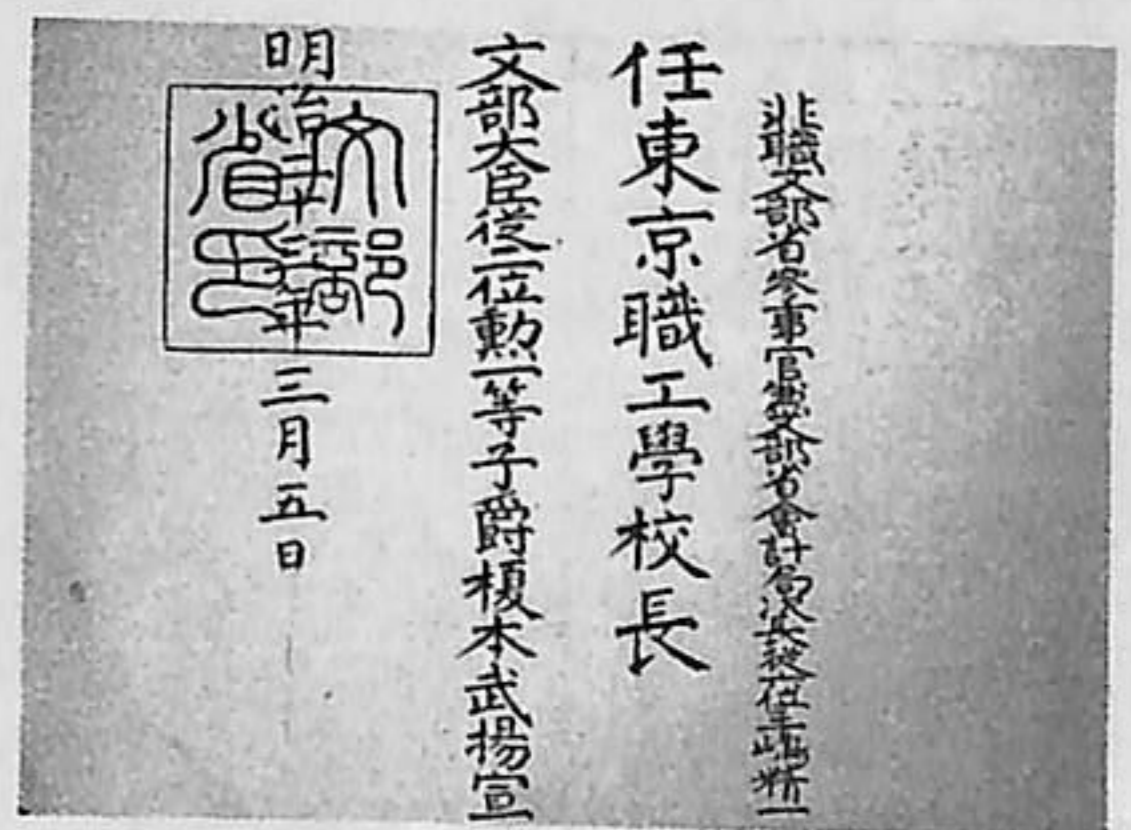 非職文部省參事官兼文部省會計局次長從位手嶋精一
任東京職工學校長
文部大臣從二位勲一等子爵榎本武揚宣
明治二十三年三月五日
文部省印